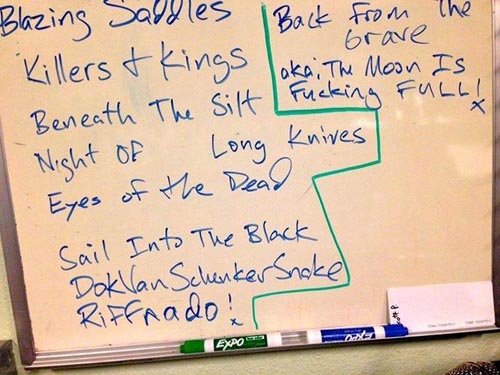 Blazing Saddles
Killers + Kings
Beneath The Silt
Night Of Long Knives
Eyes of the Dead
Sail Into The Black
DokVanSchenkerSnake
RiFFnado!
Back From The
Grave
aka: The Moon Is
Fucking FULL!
EXPO
EXPO